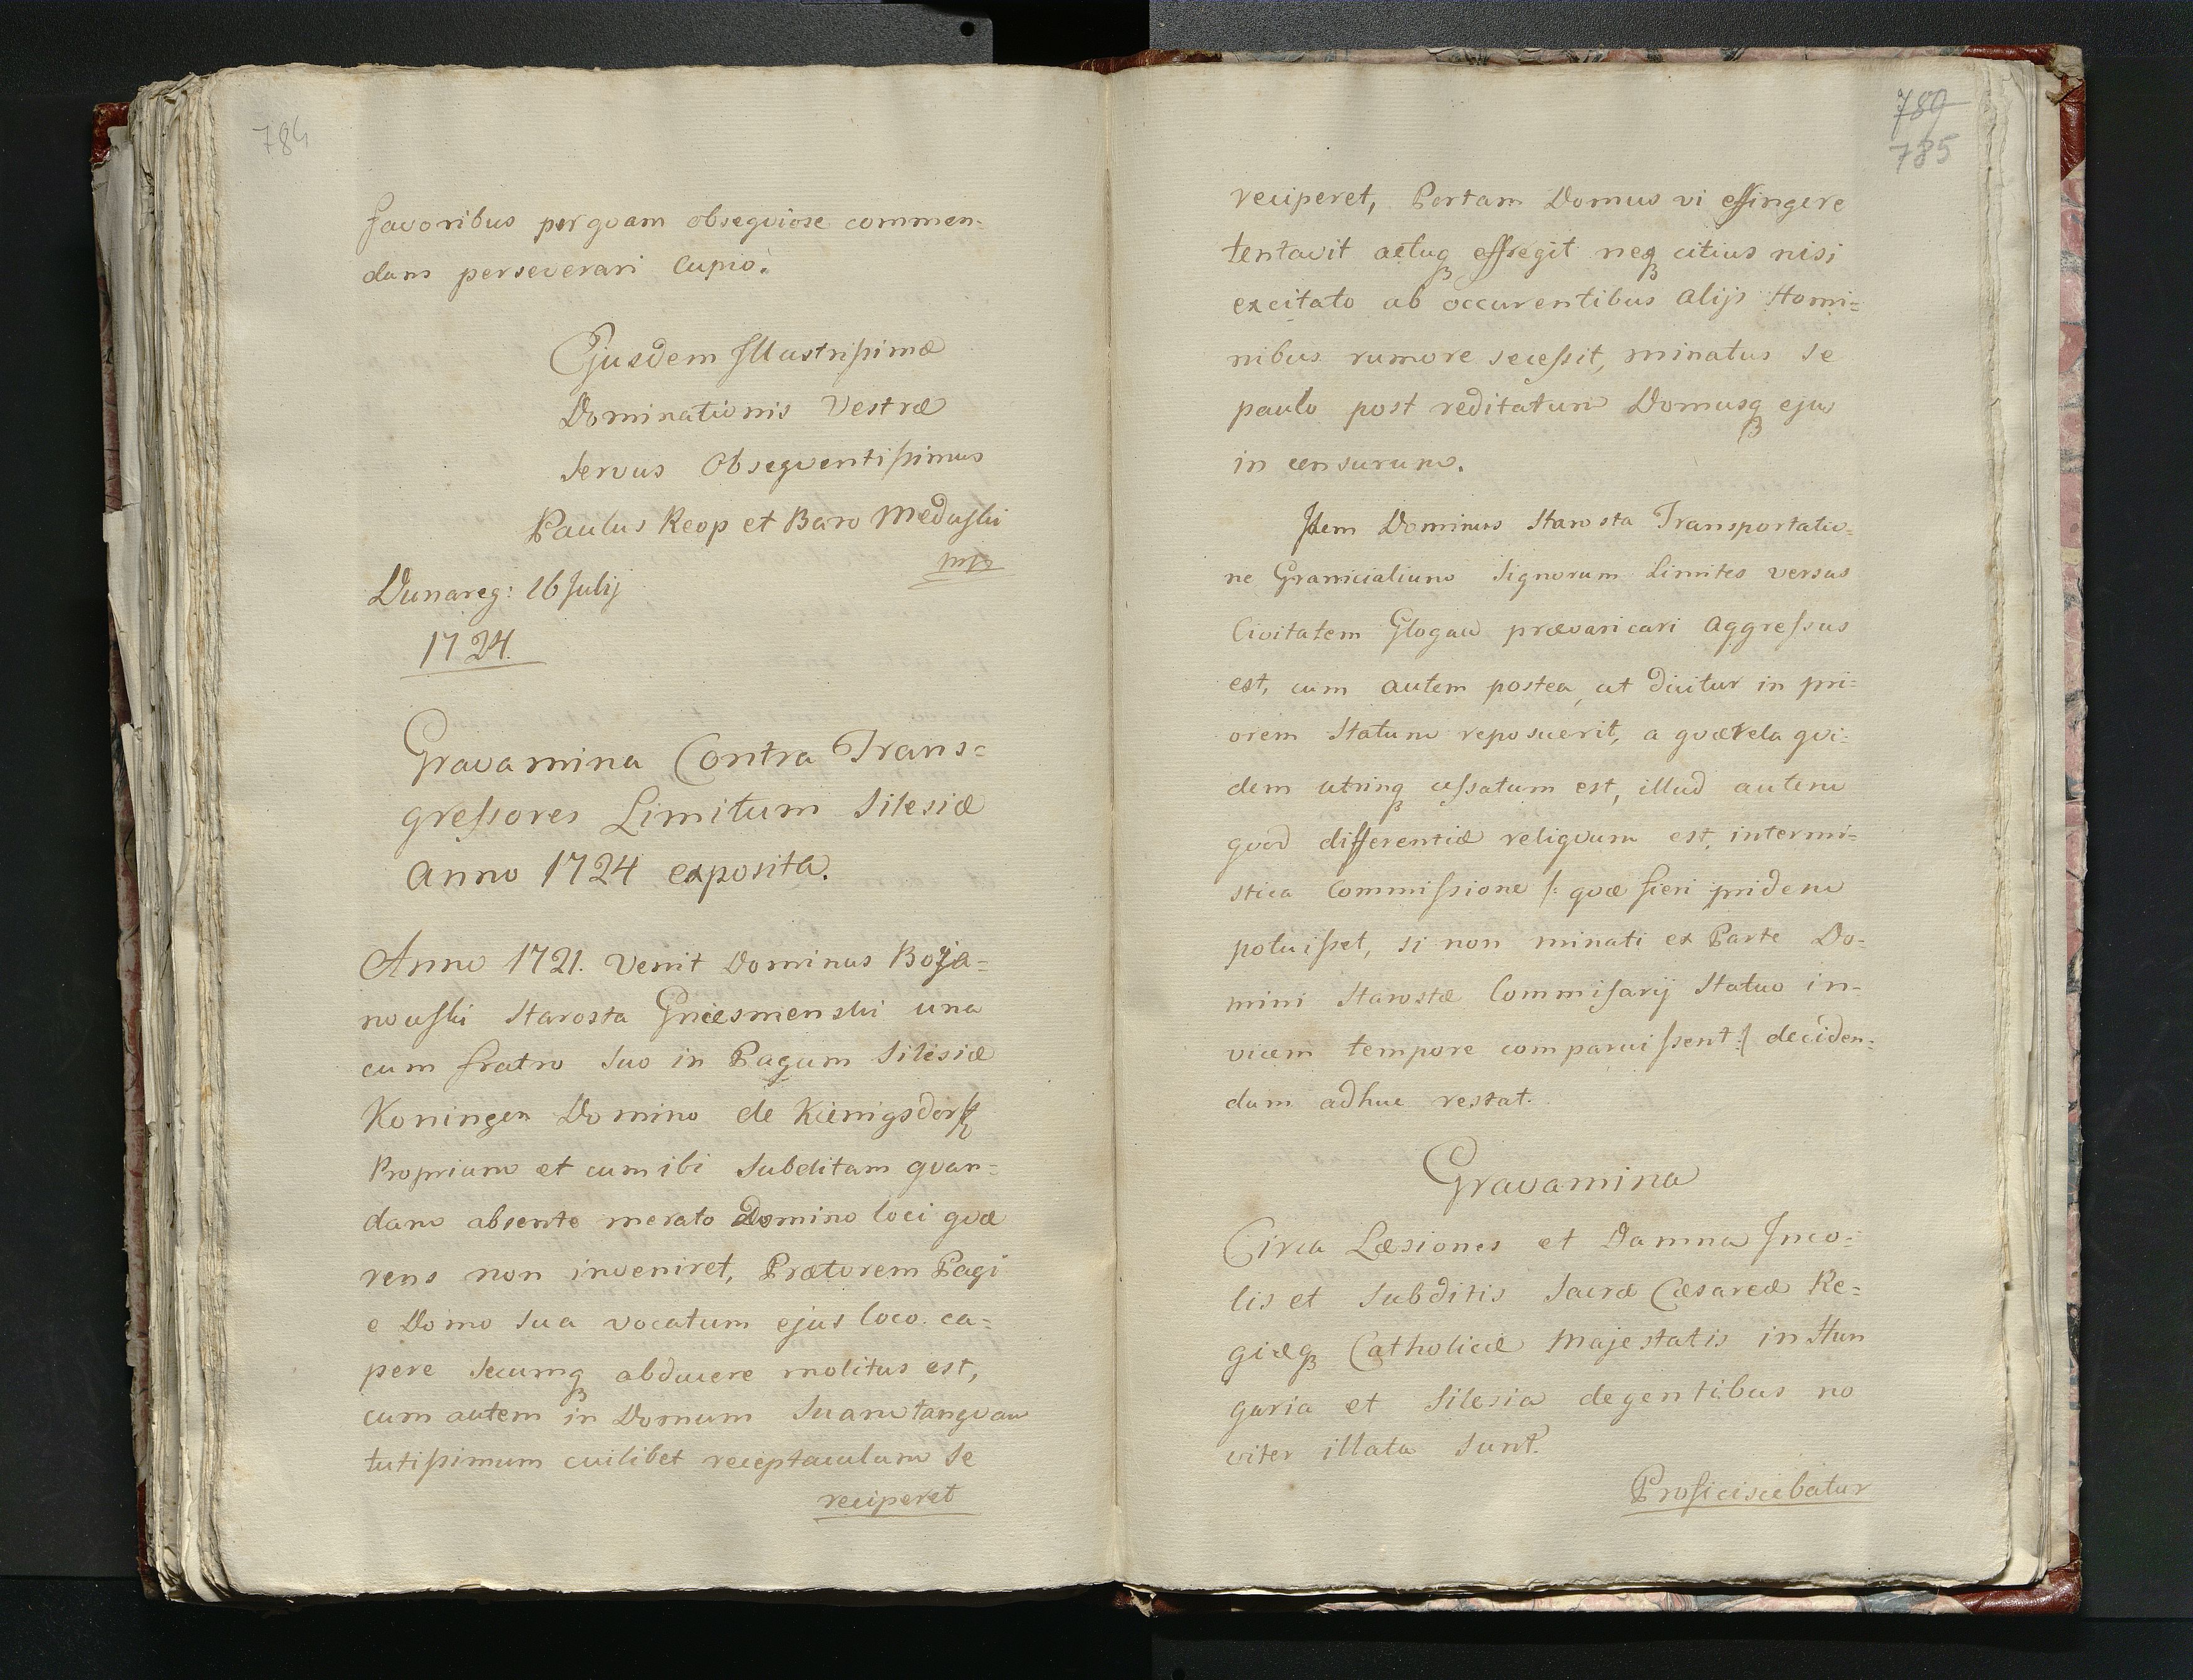 784
favoribus perquam obsequiose commen-
dans perseverari Cupio.
Ejusdem Illustrissimæ
Dominationis Vestræ
Servus Obsequentissimus
Paulus Keop et Baro Meduski
mp
Dunareg: 16 Julij
1724.
Gravamina Contra Trans=
gressores Limitum Silesiæ
Anno 1724 exposita.
Anno 1721. Venit Dominus Boja=
nowski Starosta Gnieesmenski una
cum fratro Suo in Pagum Silesiæ
Koningen Domino de Kienigsdorff
Proprium et cum ibi Subditam quan=
dam absente merato Domino loci quæ
rens non inveniret, Prætorem Pagi
e Domo Sua vocatum ejus loco ca=
pere Secumq abducere molitus est,
cum autem in Domum Suam tanquam
tutissimum cuilibet receptaculum Se
reciperet
789
785
reciperet, Portam Domus vi effingere
tentavit actuq effregit neq citius nisi
excitato ab occurentibus alijs Homi=
nibus rumore secessit, minatus se
paulo post reditatum Domusq ejus
in censurum.
Item Dominus Starosta Transportatio=
ne Granicialium Signorum Limites versus
Civitatem Glogau prævaricari aggressus
est, cum autem postea, ut dicitur in pri=
orem Statum reposuerit, a quærela qui=
dem utrinq cessatum est, illud autem
quod differentiæ reliquum est, intermi=
stica Commissione /: quæ fieri pridem
potuisset, si non minati ex Parte Do=
mini Starostæ Commisarij Statuo in=
vicem tempore comparuissent :/ deciden=
dum adhuc restat.
Gravamina
Circa Læsiones et Damna Inco=
lis et Subditis Sacræ Cæsareæ Re=
giæq Catholicæ Majestatis in Hun
garia et Silesia degentibus no
viter illata Sunt.
Proficiscebatur